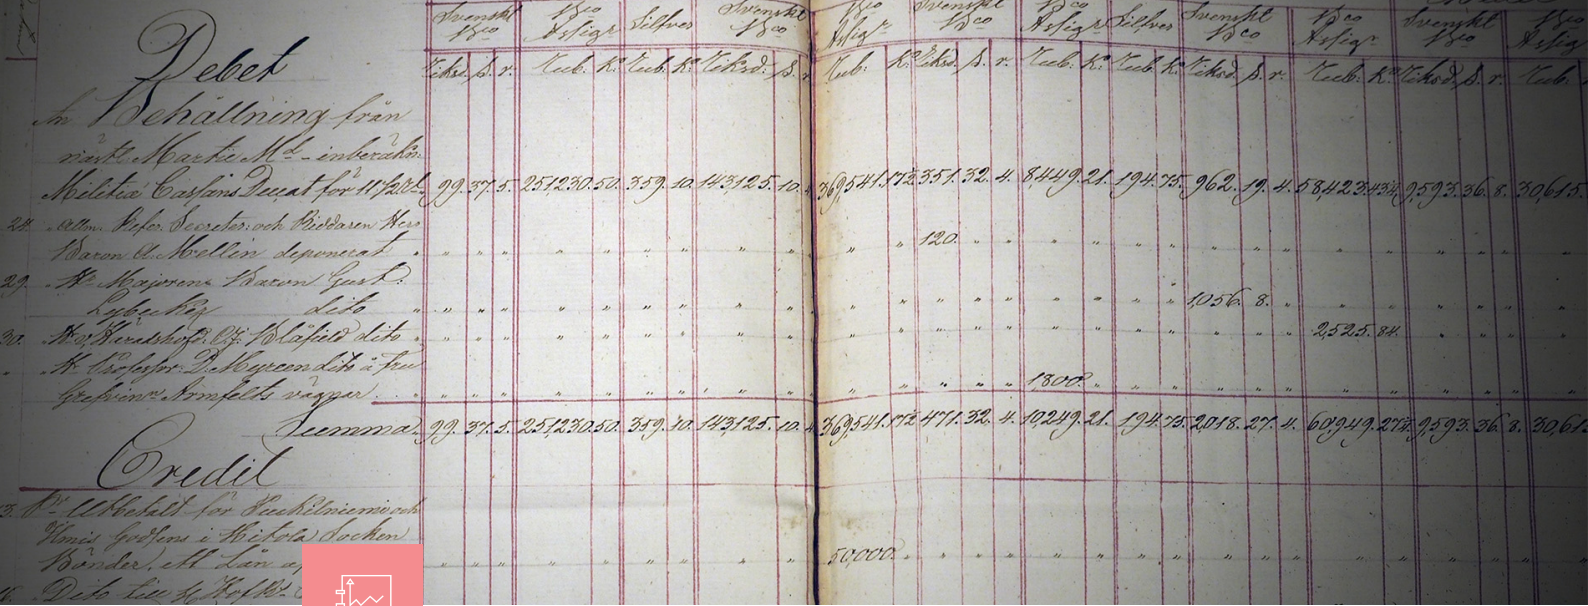 Svenskt Bco Silfver Svenskt Bco Svenskt Bco Silfver Svenskt Bco Svenskt Bco
Bco Assigr Bco Assigr Assigr Assigr Assigr
Riksd. s. r. Rub. K. Rub. K. Riksd. s. r. Rub. K. Riksd. s. r. Rub. K. Rub. K. Riksd. s. r. Rub. K. Riksd. s. r. Rub.
Debet
An Behållning från
nästl. Martii Md - inberäkn.
Militiæ Cassans Decat för 99. 37. 5. 251,230. 50. 359. 10. 143,125. 10. 369,541. 17½ 351. 32. 4. 8,449. 21. 194. 75. 962. 19. 4. 58,423. 43¼ 9,593. 36. 8. 30,615.
24. Refer. Secreter: och Riddaren Herr
Baron A. Mellin deponerat 120.
29. Hr Majoren Baron Gust.
Lybecker dito 1,056. 8.
30. Hr Häradshöfd. Blåfield dito 2,525. 84.
Hr Professor D. Myreen dito å fru
Grefvin. Armfelts vägnar 1,800.
Summa 99. 37. 5. 251,230. 50. 359. 10. 143,125. 10. 369,541. 17½ 471. 32. 4. 10,249. 21. 194. 75. 2,018. 27. 4. 60,949. 27¼ 9,593. 36. 8. 30,615
Credit
Pr Utbetalt för och
Godsens i Hitola Socken
Bönder, till Lån 50,000.
Dito till